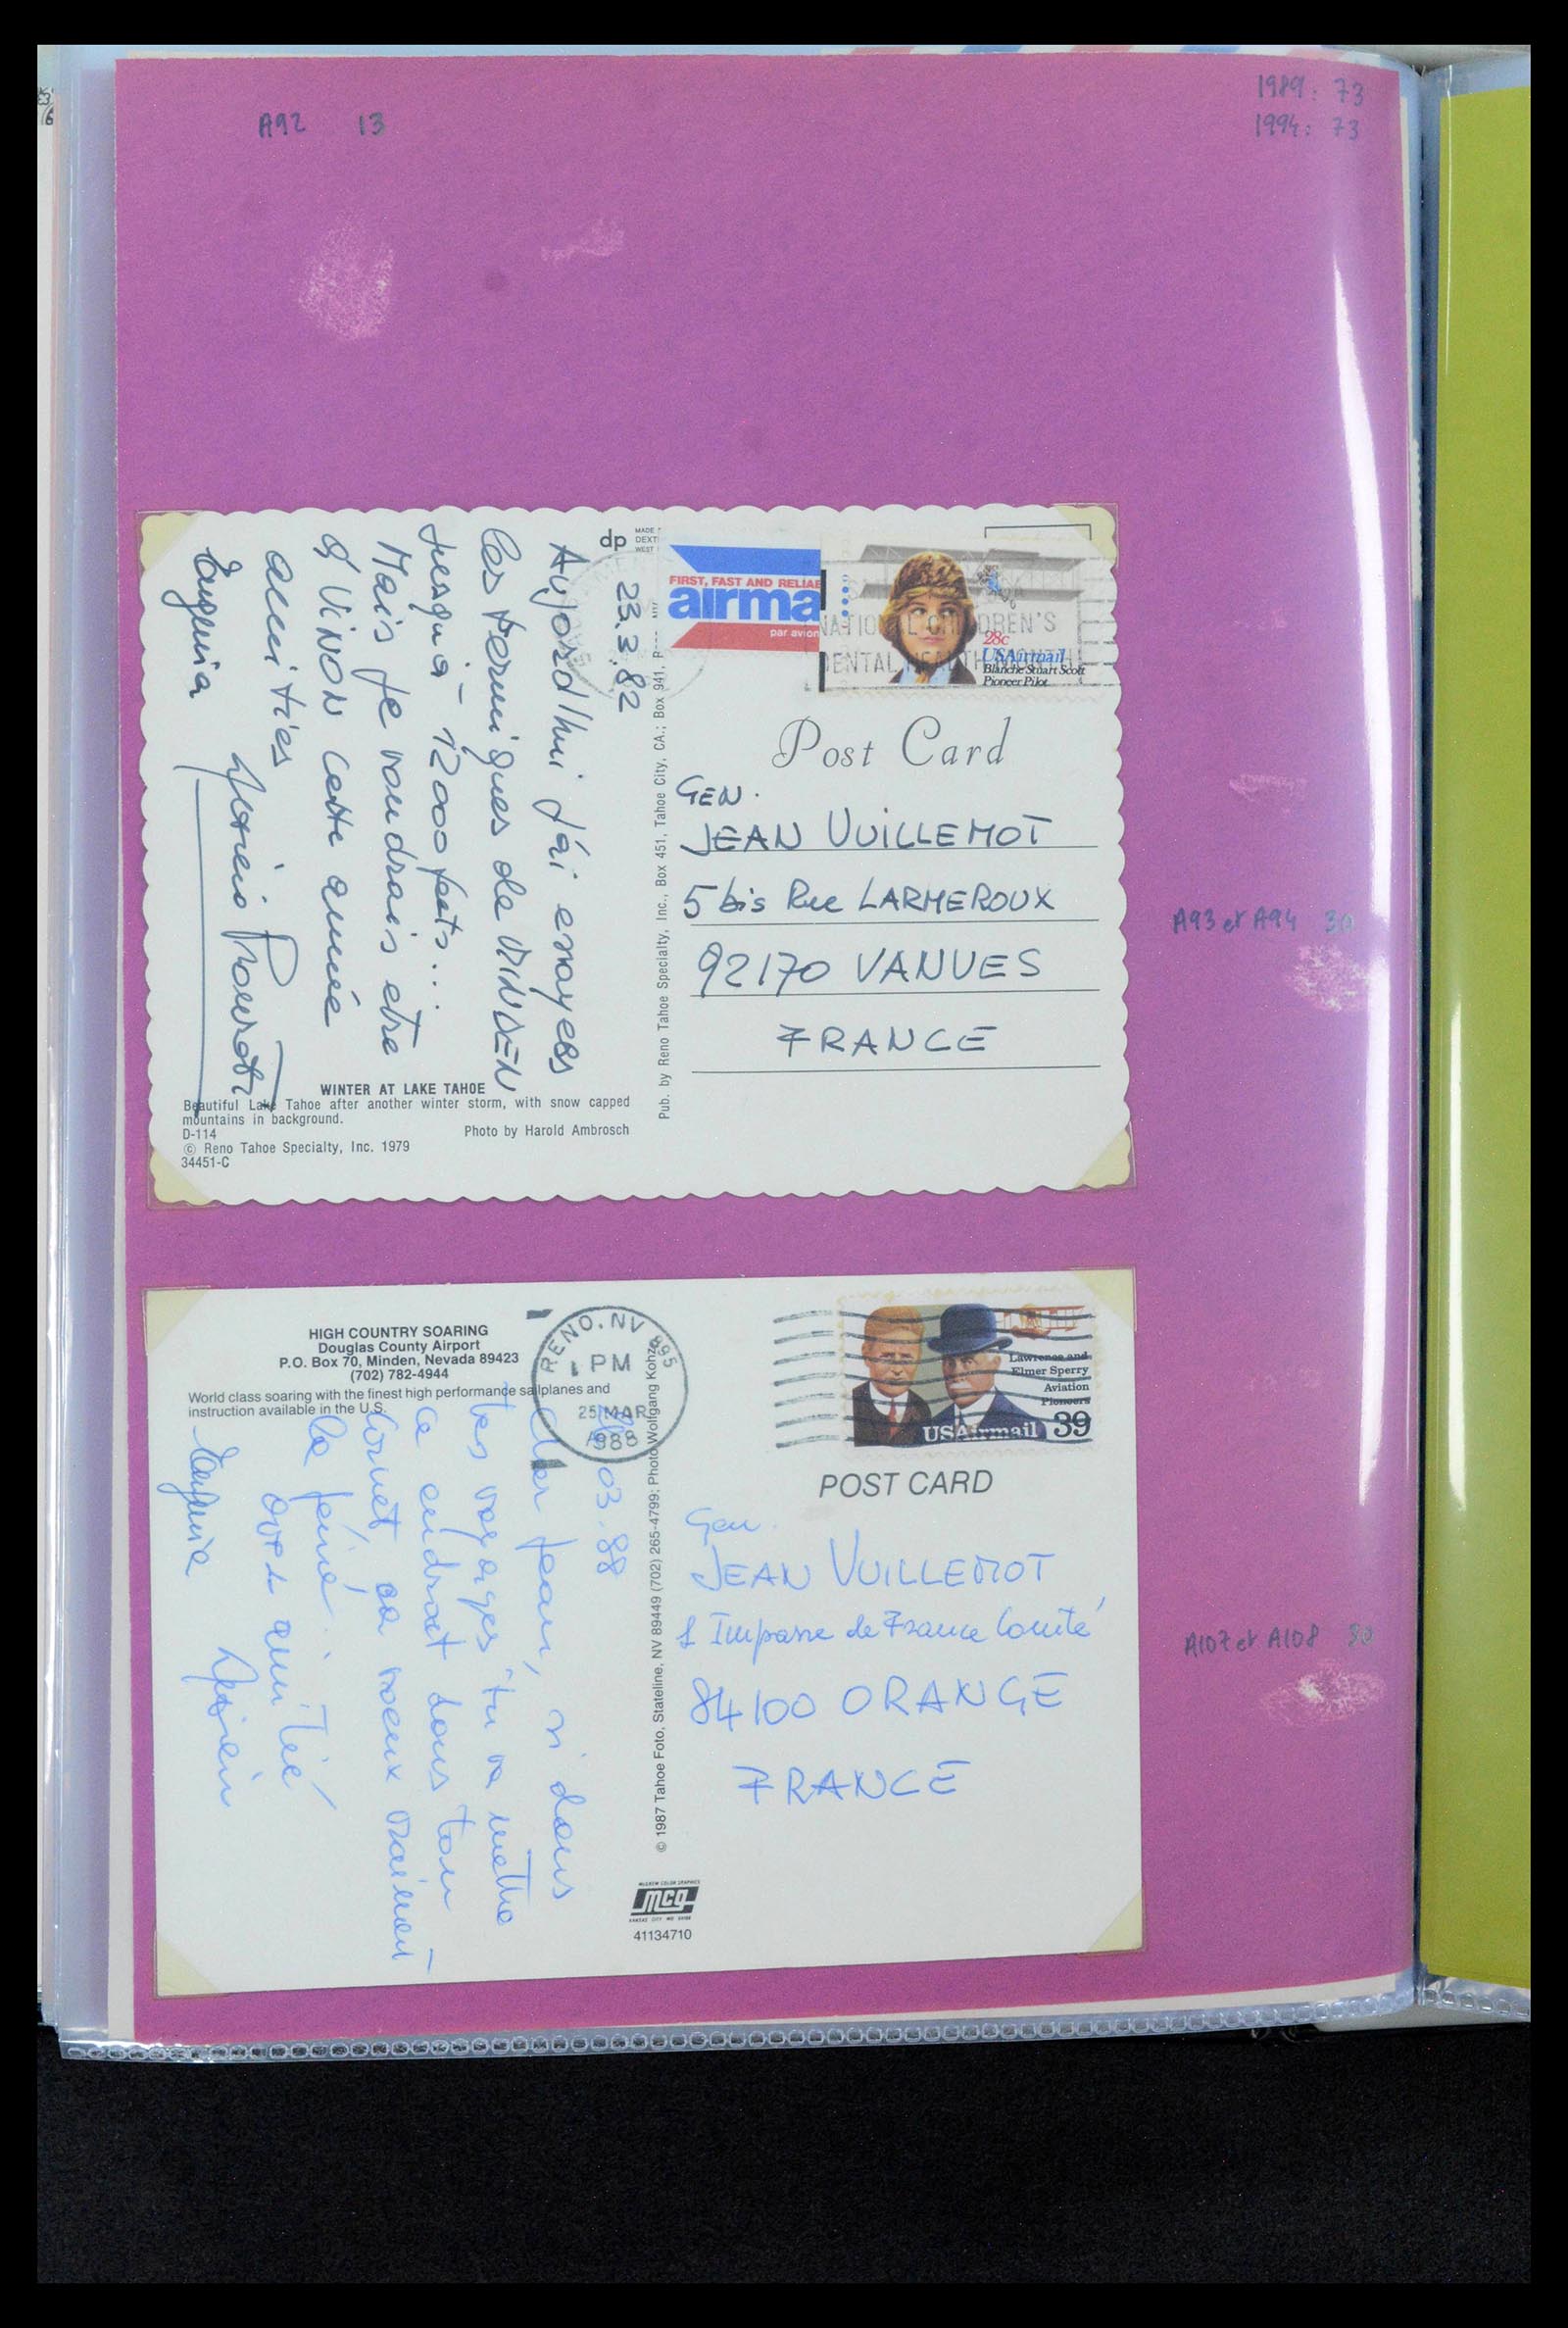 A92 13
1989: 73
1994: 73
dp
FIRST, FAST AND RELIAB
airma
par avion
NATIONAL CHILDREN'S
DENTAL HEALTH MONTH
28c
USAirmail
Blanche Stuart Scott
Pioneer Pilot
23.3.82
Aujord'hui j'ai essayees
les termiques de MINDEN
jusqu'à 12000 feets...
Mais je voudrais etre
a VINON cette année
amities
Eugenia
Post Card
GEN.
JEAN VUILLEMOT
5 bis Rue LARMEROUX
92170 VANVES
FRANCE
Pub. by Reno Tahoe Specialty, Inc., Box 451, Tahoe City, CA.; Box 941,
WINTER AT LAKE TAHOE
Beautiful Lake Tahoe after another winter storm, with snow capped
mountains in background.
D-114
Photo by Harold Ambrosch
© Reno Tahoe Specialty, Inc. 1979
34451-C
A93 et A94 30
HIGH COUNTRY SOARING
Douglas County Airport
P.O. Box 70, Minden, Nevada 89423
(702) 782-4944
World class soaring with the finest high performance sailplanes and
instruction available in the U.S.
RENO, NV 895
PM
25 MAR
1988
Lawrence and
Elmer Sperry
Aviation
Pioneers
USAirmail 39
03.88
Cher Jean, si dans
tes voyages tu va mettre
ce endroit dans ton
carnet ça voeux
la peine.
avec amitié
Eugenia
© 1987 Tahoe Foto, Stateline, NV 89449 (702) 265-4799; Photo Wolfgang Kohze
POST CARD
Gen.
JEAN VUILLEMOT
1 Impasse de France Comité
84100 ORANGE
FRANCE
A107 et A108
mcg
41134710